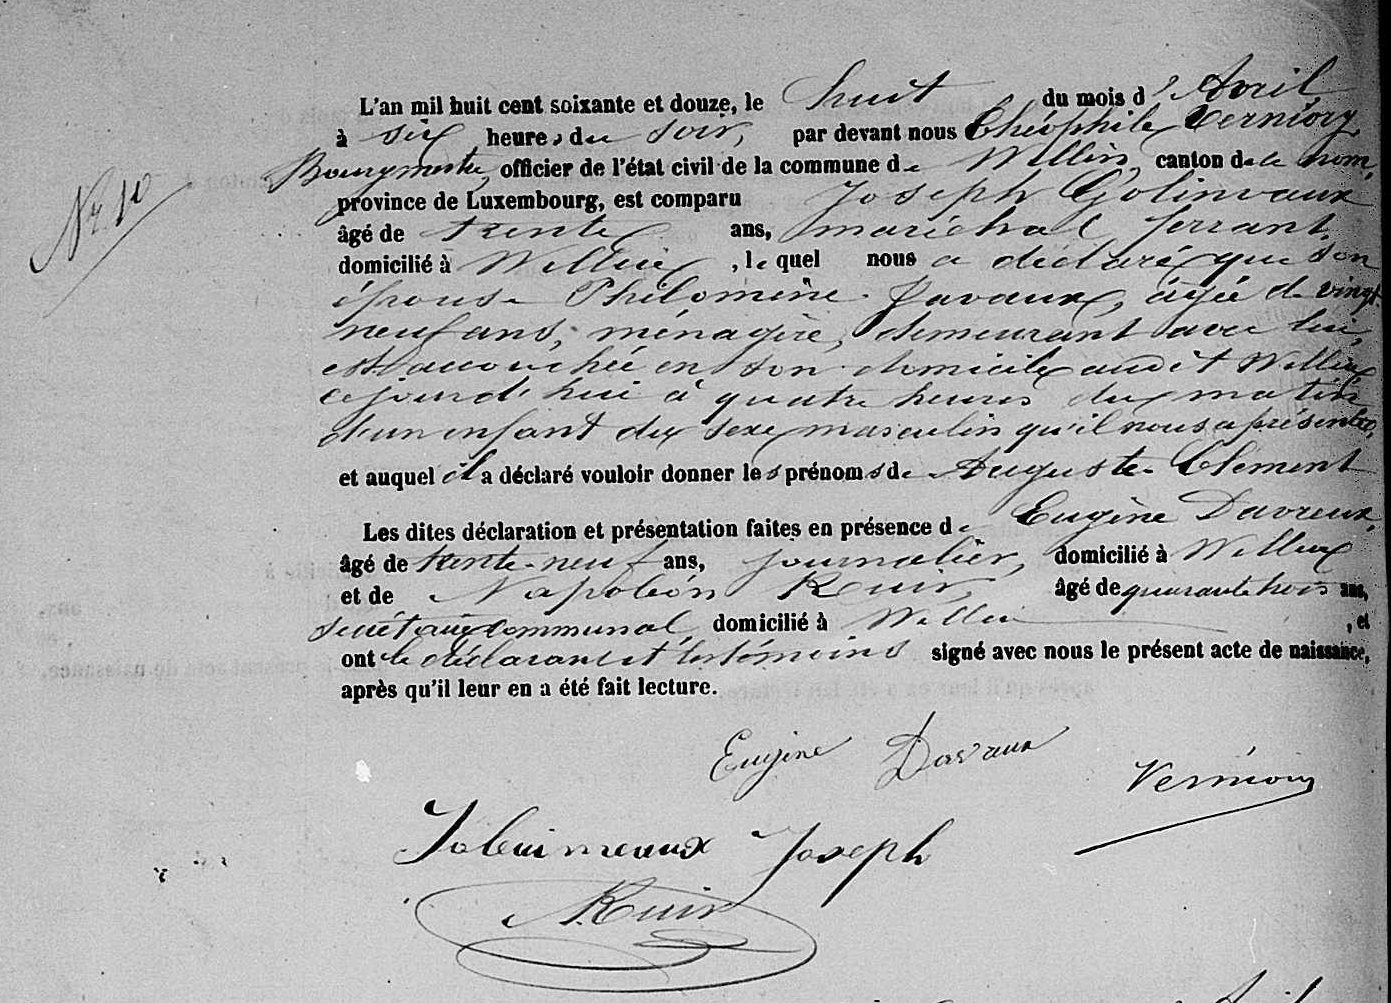 Nr. 10
L'an mil huit cent soixante et douze, le huit du mois d'Avril,
à six heures du soir, par devant nous Théophile Verniory
Bourgmestre, officier de l'état civil de la commune de Wellin, canton de le nom,
province de Luxembourg, est comparu Joseph Golinvaux
âgé de trente ans, maréchal ferrant,
domicilié à Wellin, lequel nous a déclaré que son
épouse Philomène Javaux, âgée de vingt
neuf ans, ménagère, demeurant avec lui,
est accouchée en son domicile audit Wellin
cejourd'hui à quatre heures du matin
d'un enfant du sexe masculin qu'il nous a présenté,
et auquel il a déclaré vouloir donner les prénoms de Auguste Clément
Les dites déclaration et présentation faites en présence de Eugène Davreux,
âgé de trente-neuf ans, journalier, domicilié à Wellin
et de Napoléon Ruir, âgé de quarante trois ans,
secrétaire communal, domicilié à Wellin, et
ont le déclarant et les témoins signé avec nous le présent acte de naissance,
après qu'il leur en a été fait lecture.
Eugène Davaux
Verniory
Joseph
NRuir